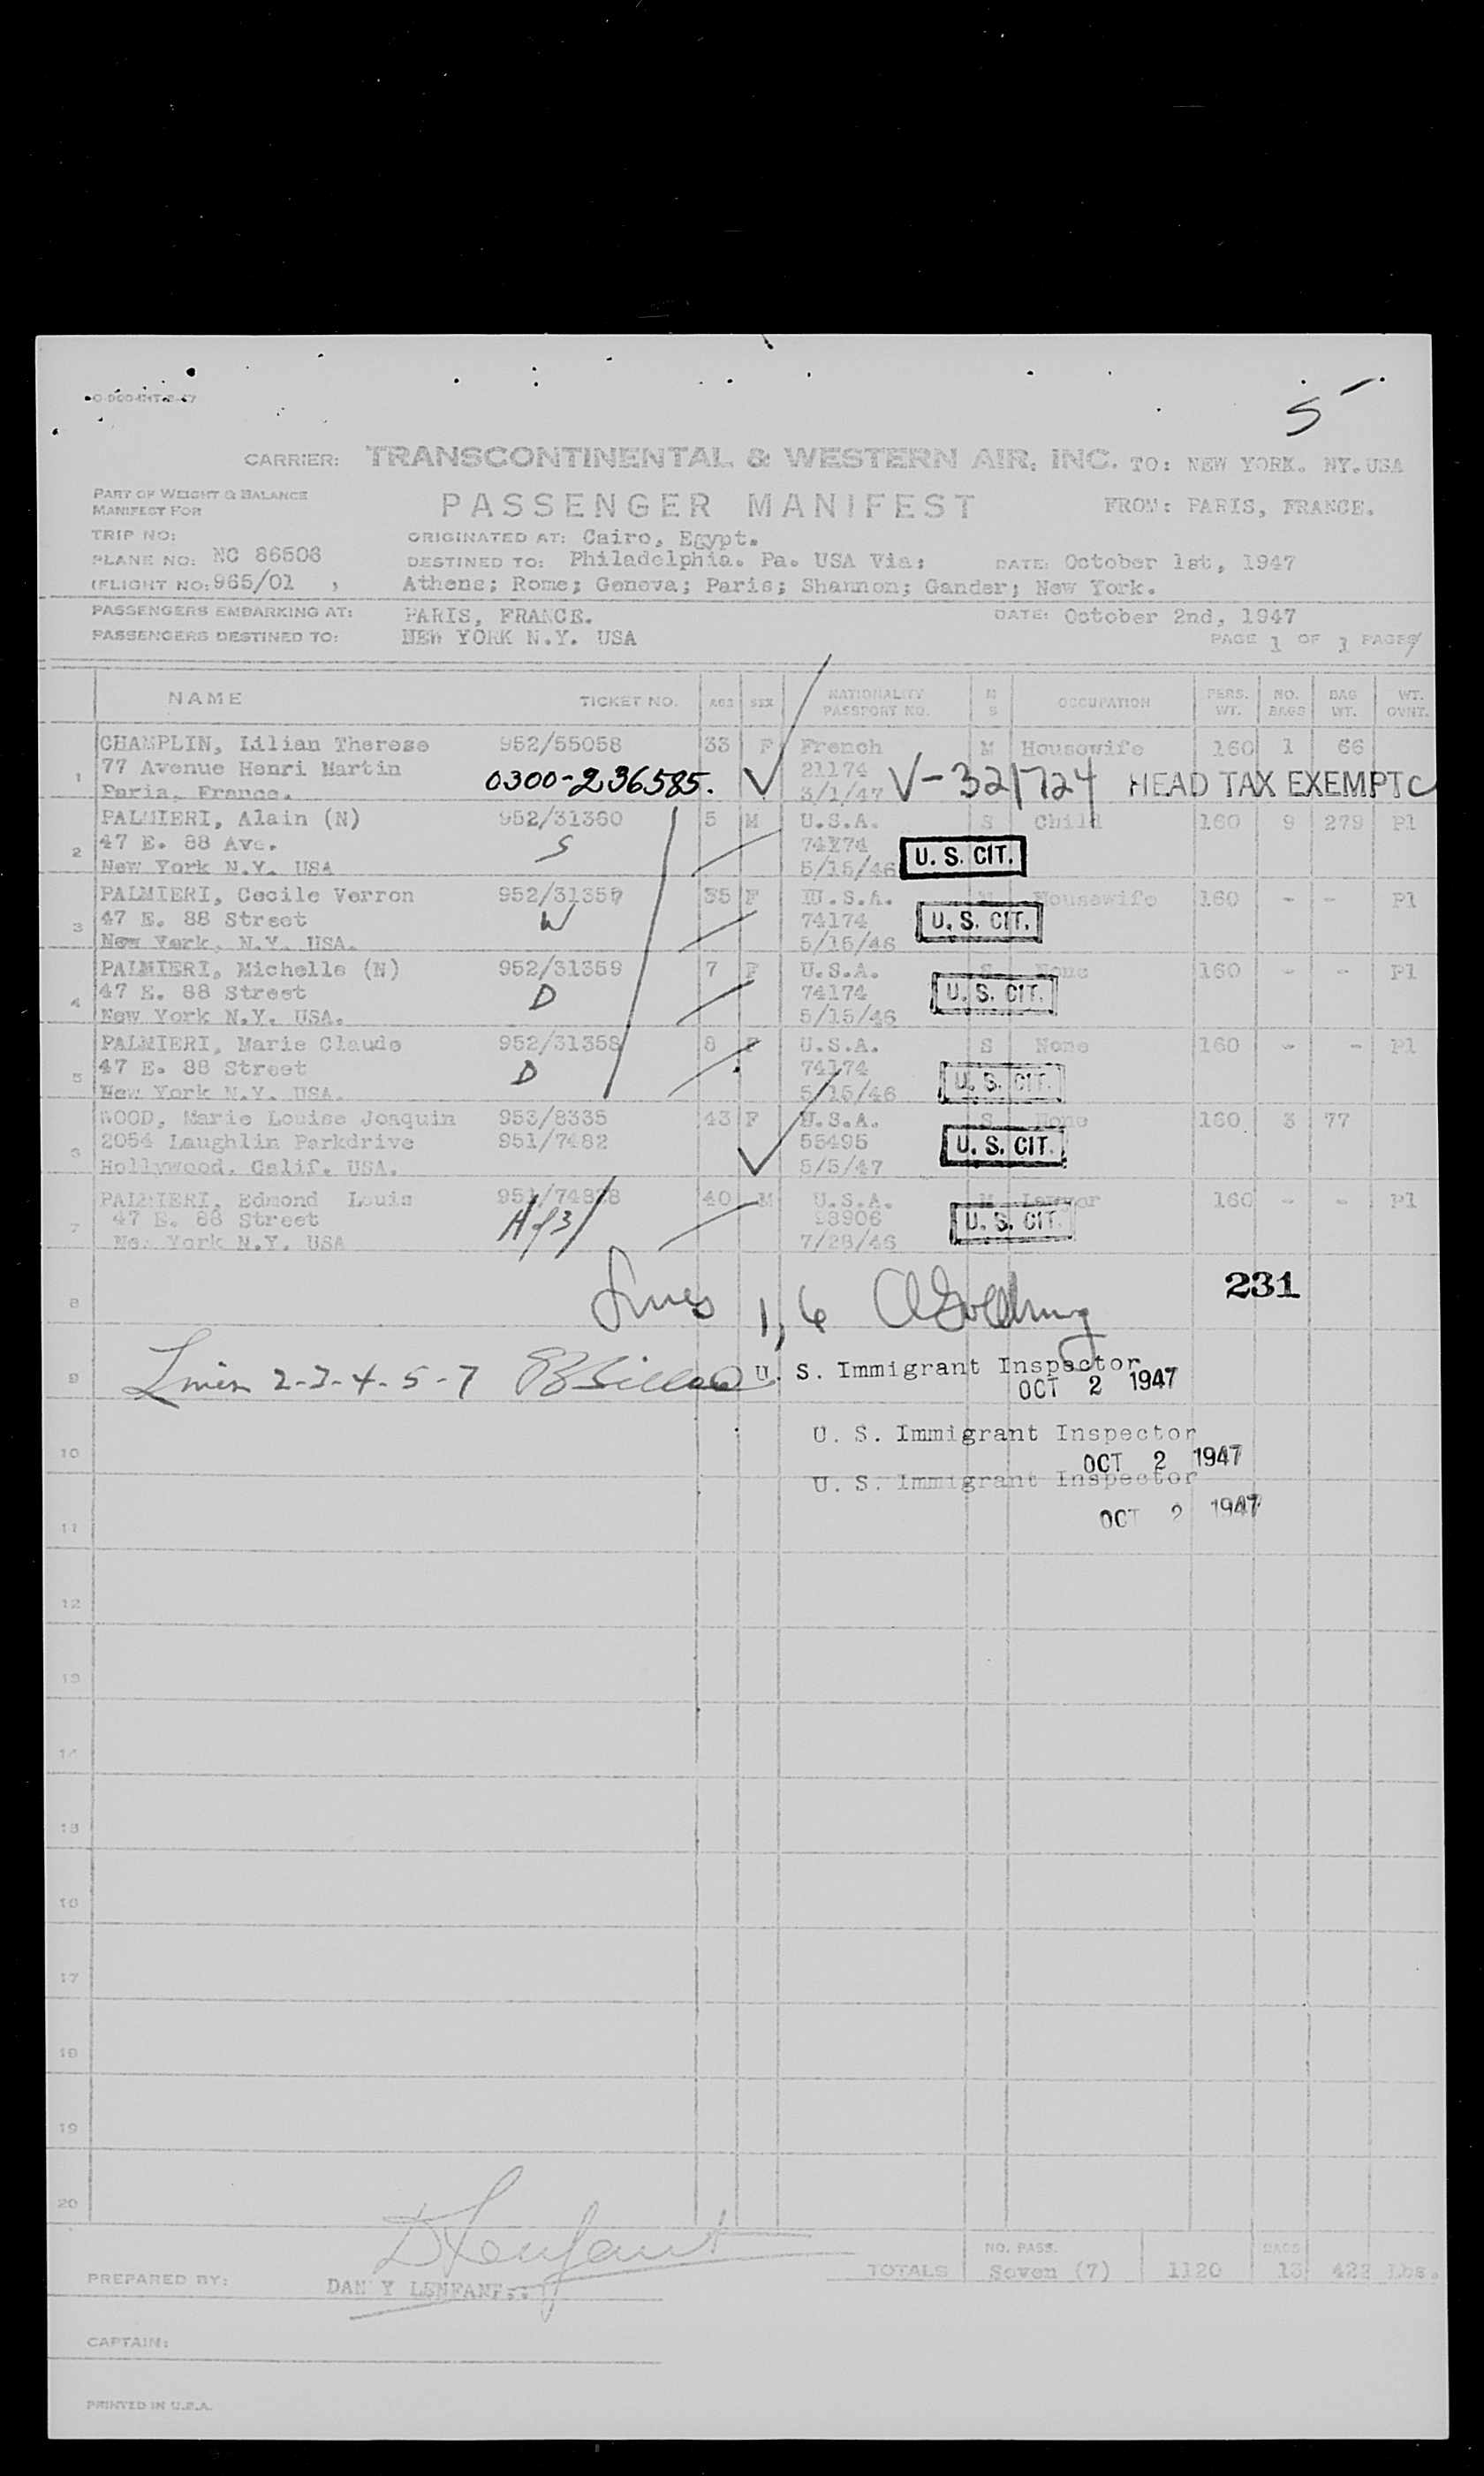 5
CARRIER: TRANSCONTINENTAL & WESTERN AIR, INC. TO: NEW YORK. NY.USA
PART OF WEIGHT & BALANCE
MANIFEST FOR
PASSENGER MANIFEST FROM: PARIS, FRANCE.
TRIP NO: ORIGINATED AT: Cairo, Egypt.
PLANE NO: NC 86508 DESTINED TO: Philadelphia. Pa. USA Via: DATE: October 1st, 1947
(FLIGHT NO: 965/01 , Athens; Rome; Geneva; Paris; Shannon; Gander; New York.
PASSENGERS EMBARKING AT: PARIS, FRANCE. DATE: October 2nd, 1947
PASSENGERS DESTINED TO: NEW YORK N.Y. USA PAGE 1 OF 1 PAGES
NAME TICKET NO. AGE SEX NATIONALITY PASSPORT NO. M S OCCUPATION PERS. WT. NO. BAGS BAG WT. WT. OVHT.
CHAMPLIN, Lilian Therese 952/55058 33 F French M Housewife 160 1 66
1 77 Avenue Henri Martin 0300-236585. 21174 V-321724 HEAD TAX EXEMPT C
Paris, France. 3/1/47
PALMIERI, Alain (N) 952/31360 5 M U.S.A. S Child 160 9 279 Pl
2 47 E. 88 Ave. S 74174 U. S. CIT.
New York N.Y. USA 5/15/46
PALMIERI, Cecile Verron 952/31357 35 F U.S.A. M Housewife 160 - - Pl
3 47 E. 88 Street W 74174 U. S. CIT.
New York, N.Y. USA. 5/15/46
PALMIERI, Michelle (N) 952/31359 7 F U.S.A. S None 160 - - Pl
4 47 E. 88 Street D 74174 U. S. CIT.
New York N.Y. USA. 5/15/46
PALMIERI, Marie Claude 952/31358 8 F U.S.A. S None 160 - - Pl
5 47 E. 88 Street D 74174 U. S. CIT.
New York N.Y. USA. 5/15/46
WOOD, Marie Louise Joaquin 953/8335 43 F U.S.A. S None 160 3 77
6 2054 Laughlin Parkdrive 951/7482 55495 U. S. CIT.
Hollywood. Calif. USA. 5/5/47
PALMIERI, Edmond Louis 951/74838 40 M U.S.A. M Lawyor 160 - - Pl
7 47 E. 88 Street 28906 U. S. CIT.
New York N.Y. USA 7/28/46
231
8 Lines 1, 6
9 Lines 2-3-4-5-7 U. S. Immigrant Inspector
OCT 2 1947
U. S. Immigrant Inspector
10 OCT 2 1947
U. S. Immigrant Inspector
11 OCT 2 1947
12
13
14
15
16
17
18
19
20
DLenfant
NO. PASS. BAGS
TOTALS Seven (7) 1120 13 422 Lbs.
PREPARED BY: DANY LENFANT.
CAPTAIN:
PRINTED IN U.S.A.